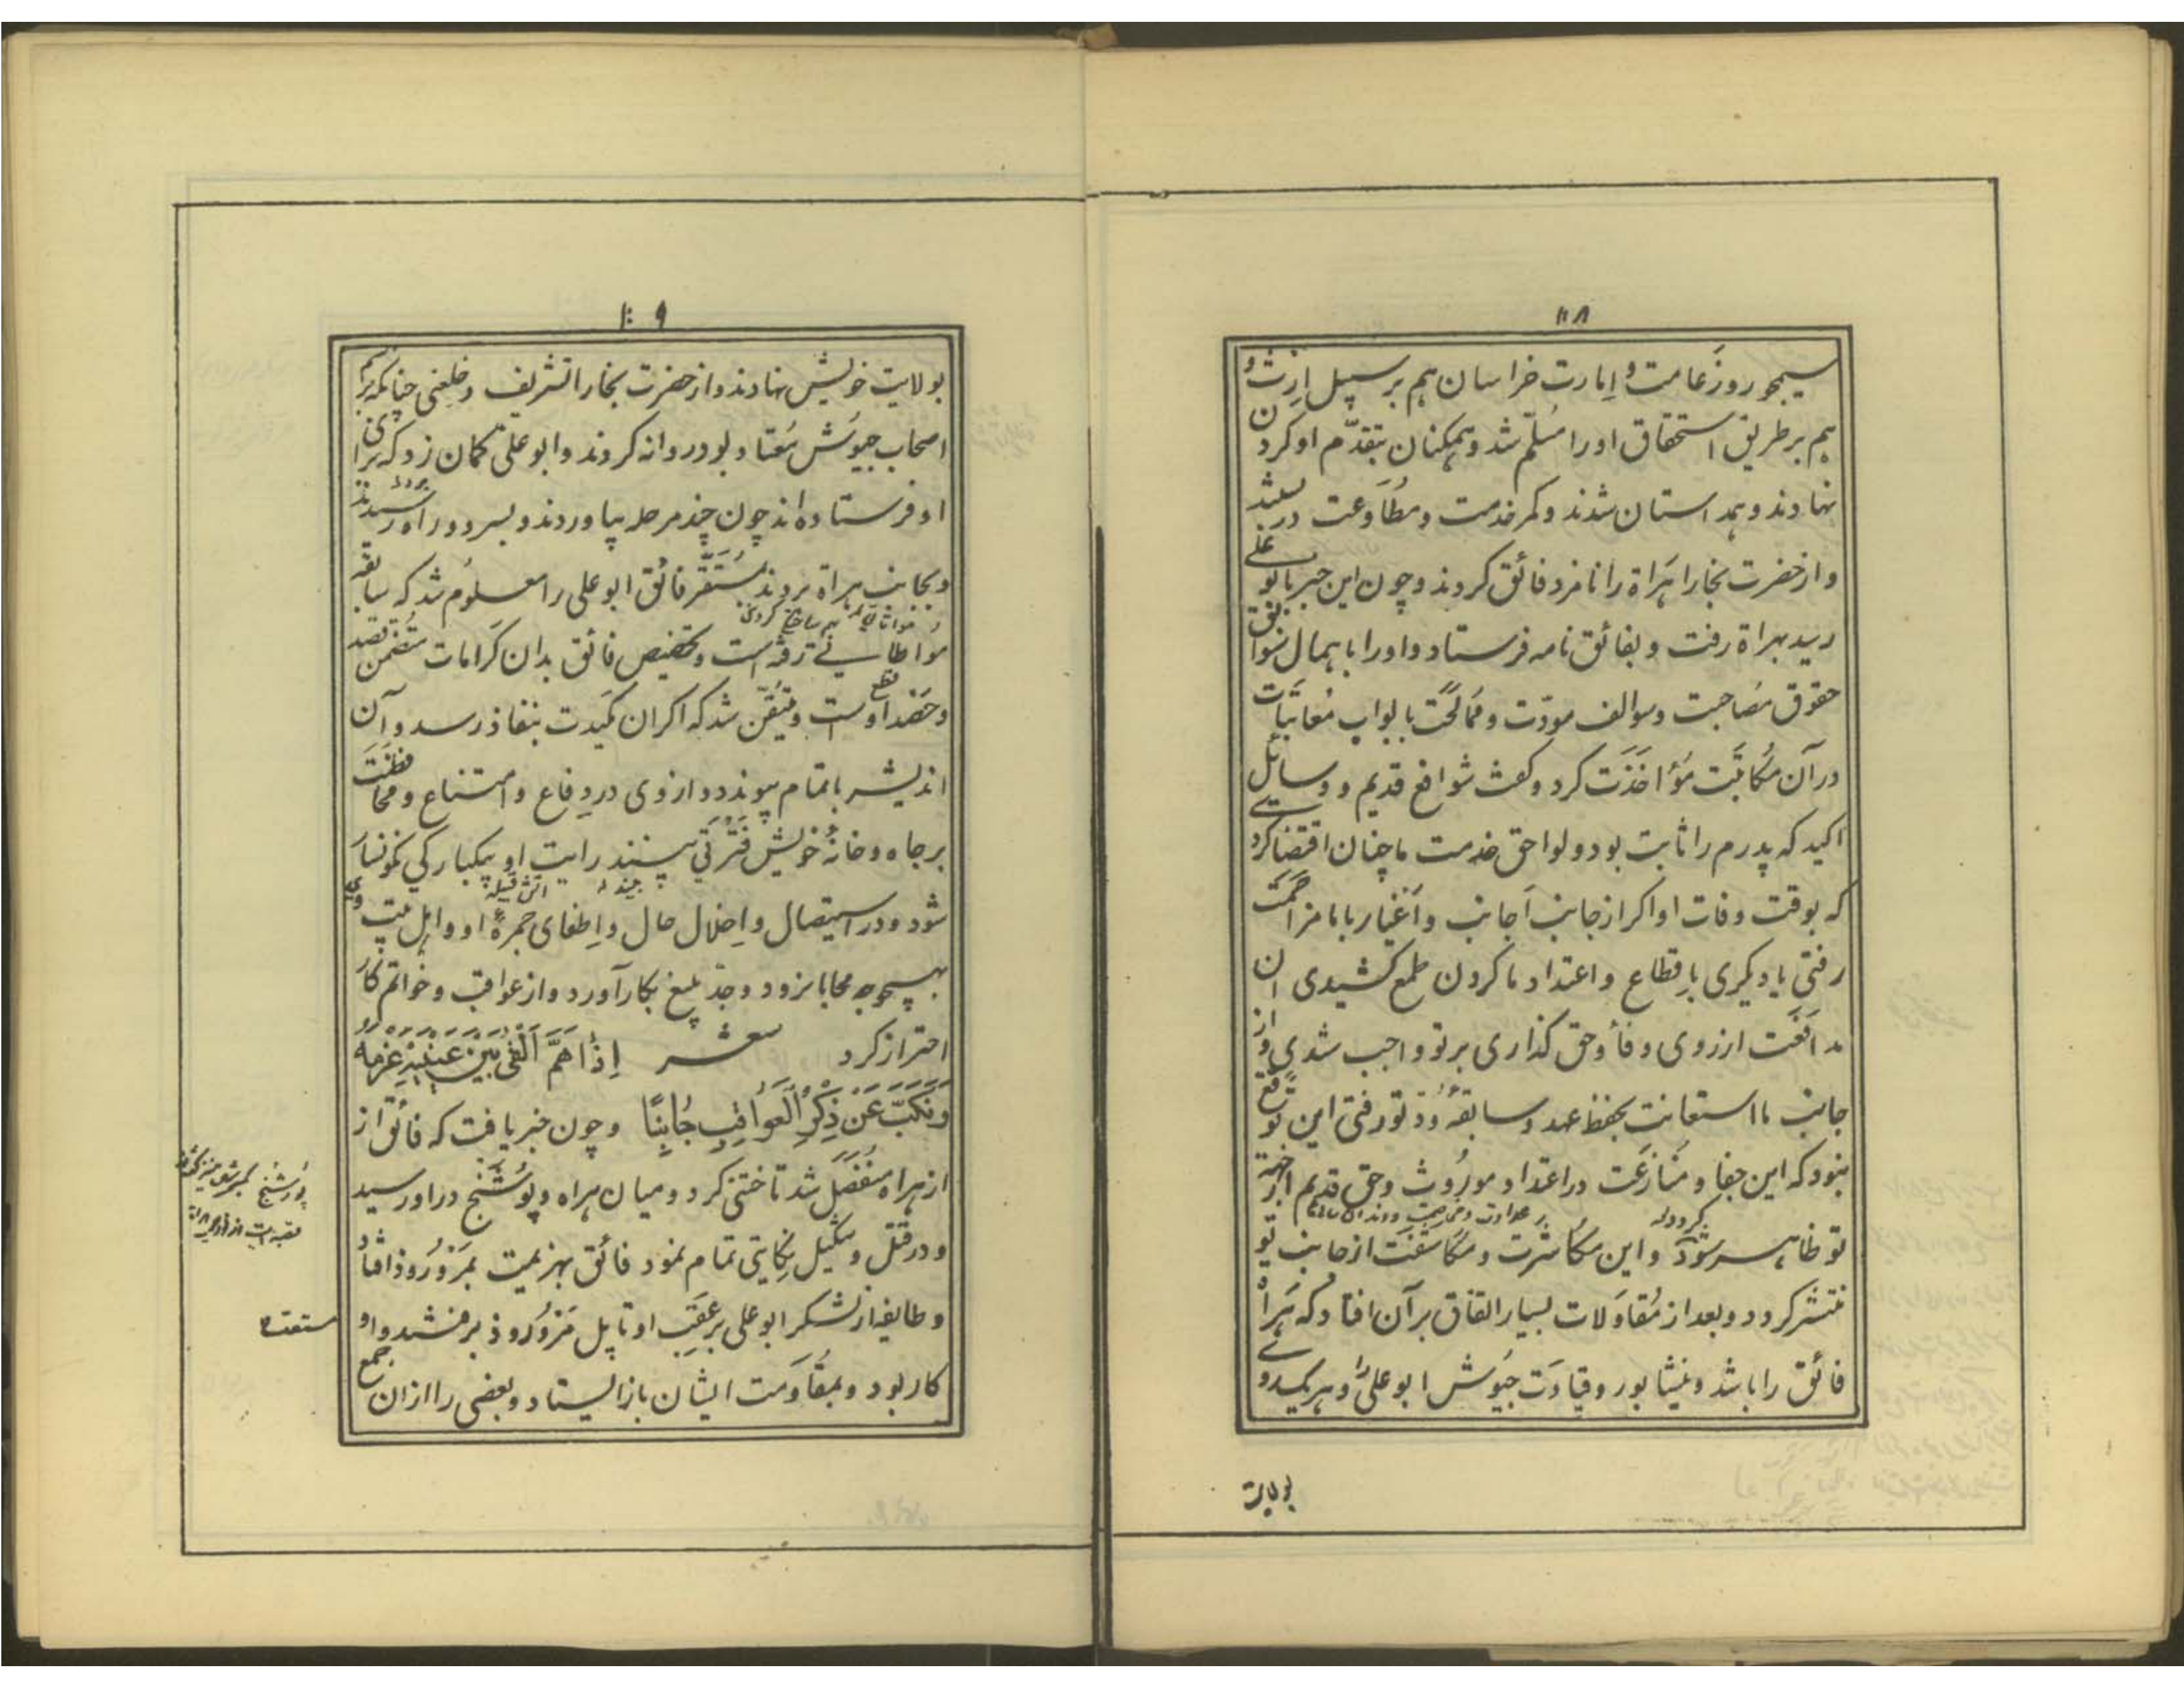 ۱۰۸
سیمجور وزعامت و امارت خراسان هم بر سبیل ارث و
هم بر طریق استحقاق او را مسلّم شد و همکنان بتقدّم او کردن
نهادند و همداستان شدند و کمر خدمت و مطاوعت دربستند
و از حضرت بخارا هَراة را نامزد فائق کردند و چون این خبر بابو علی
رسید بهراة رفت و بفائق نامه فرستاد و او را باهمال سوابق
حقوق مصاحبت و سوالف مودّت و ممالحت بابواب معاتبات
در آن مکاتبَت مؤاخذَت کرد و کفت شوافع قدیم و وسائل
اکید که پدرم را ثابت بود و لواحق خدمت ما چنان اقتضا کردی
که بوقت وفات او اکر از جانب اَجانب و اَغیار با ما مزاحمت
رفتی یا دیکری باِقطاع و اعتداد ما کردن طمع کشیدی آن
مدافَعت از روی وفا و حق کذاری بر تو واجب شدی و از
جانب ما استعانت بحفظ عهد و سابقهٔ وُدّ تو رفتی این توقّع
نبود که این جفا و مُنازعَت در اعتداد موروث و حق قدیم از جهة
کردد له
تو ظاهر شود و این مکاشرت و مکاشفَت از جانب تو
منتشر کردد و بعد از مُقاوَلات بسیار اتفاق بر آن افتاد که هَراه
فائق را باشد و نیشابور و قیادَت جیُوش ابو علی را و هر یک روی
بولایت
۱۰۹
بولایت خویش نهادند و از حضرت بخارا تشریف و خلعتی چنانکه برسم
اصحاب جیُوش مُعتاد بود روانه کردند و ابو علی کمان زد که برای
او فرستاده اند چون چند مرحله بیاوردند و بسر دو راه رسیدند
و بجانب هراة بردند مُستَقرّ فائق ابو علی را معلوم شد که سابقه
مواطاتی رفته است و تخصیص فائق بدان کَرامات متُضَمن قصد
قطع
و حَصد اوست و متیقّن شد که اکر ان مَکیدت بنفاذ رسد و آن
اندیشه باتمام پیوندد و از وی در دِفاع و امتناع و محافظَت
بر جاه و خانهٔ خویش فَترتی بینند رایت او بیکبارکی نکونسار
شود و در استیصال و اِخلال حال و اِطفای جمرهٔ او و اهل بیت وی
بهیچوجه محابا نرود و جدّ بلیغ بکار آورد و از عواقب و خواتم کار
احتراز کرد شعر اِذا هَمَّ اَلقی بَینَ عَینَیهِ عَزمَهُ
وَنَکَّبَ عَن ذِکرِ العَواقِبِ جانِبًا و چون خبر یافت که فائق از
از هراه منفَصل شد تاختنی کرد و میان هراه و پُوشَنج در او رسید
و در قتل و تنکیل نِکایتی تمام نمود فائق بهزیمت بمَرورُوذ افتاد
و طایفهٔ از لشکر ابو علی بر عَقِبِ او تا پل مَرورُوذ برفتند و او
مستعد
کار بود و بمقاوَمت ایشان باز ایستاد و بعضی را از ان جمع